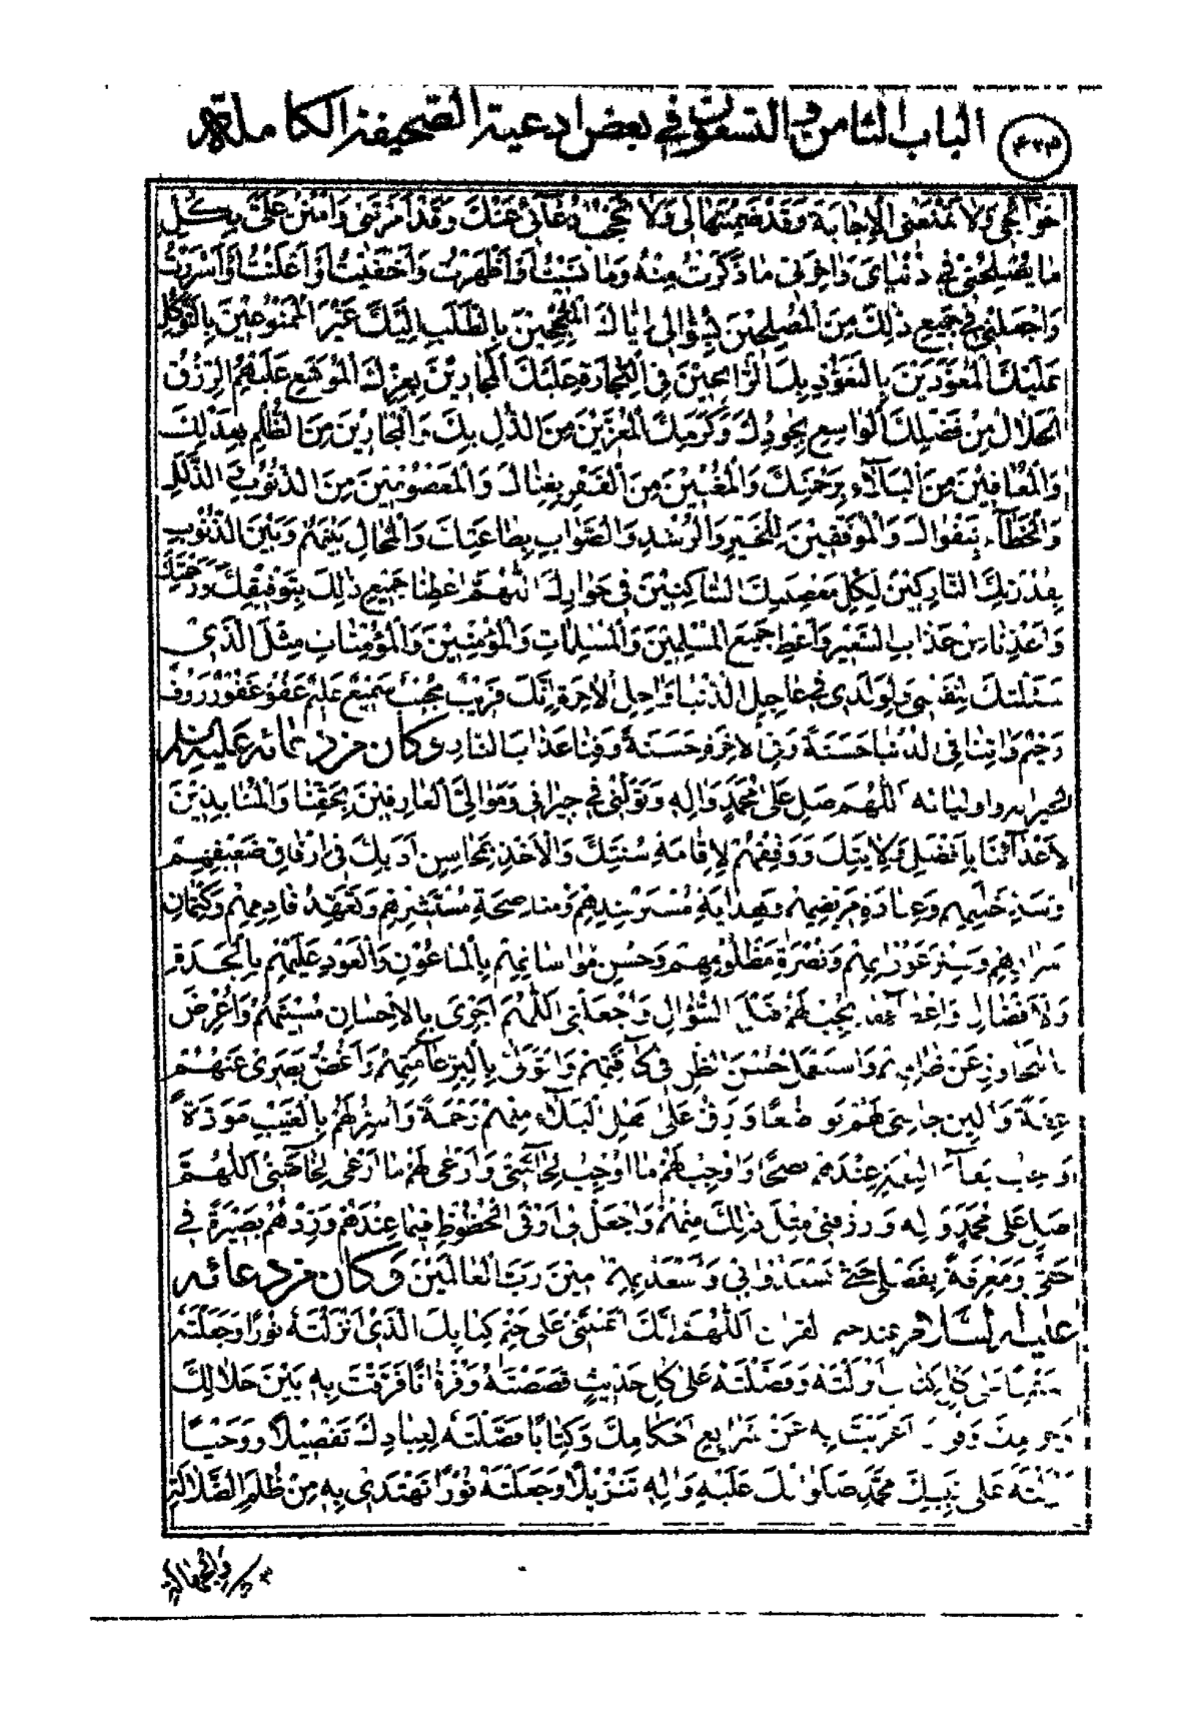 الباب الثامن والتسعون في بعض ادعية الصحيفة الكاملة
حَوَآئِجِي وَلَا تَمْنَعْنِي الْإِجَابَةَ وَقَدْ ضَمِنْتَهَا لِي وَلَا تَحْجُبْ دُعَآئِي عَنْكَ وَقَدْ أَمَرْتَنِي وَامْنُنْ عَلَيَّ بِكُلِّ
مَا يُصْلِحُنِي فِي دُنْيَايَ وَاٰخِرَتِي مَا ذَكَرْتُ مِنْهُ وَمَا نَسِيتُ أَوْ أَظْهَرْتُ أَوْ أَخْفَيْتُ أَوْ أَعْلَنْتُ أَوْ أَسْرَرْتُ
وَاجْعَلْنِي فِي جَمِيعِ ذٰلِكَ مِنَ الْمُصْلِحِينَ بِسُؤَالِي إِيَّاكَ الْمُنْجِحِينَ بِالطَّلَبِ إِلَيْكَ غَيْرَ الْمَمْنُوعِينَ بِالتَّوَكُّلِ
عَلَيْكَ الْمُعَوَّدِينَ بِالتَّعَوُّذِ بِكَ الرَّابِحِينَ فِي التِّجَارَةِ عَلَيْكَ الْمُجَارِينَ بِعِزِّكَ الْمُوَسَّعِ عَلَيْهِمُ الرِّزْقُ
الْحَلَالُ مِنْ فَضْلِكَ الْوَاسِعِ بِجُودِكَ وَكَرَمِكَ الْمُعَزِّينَ مِنَ الذُّلِّ بِكَ وَالْمُجَارِينَ مِنَ الظُّلْمِ بِعَدْلِكَ
وَالْمُعَافَيْنَ مِنَ الْبَلَآءِ بِرَحْمَتِكَ وَالْمُغْنَيْنَ مِنَ الْفَقْرِ بِغِنَاكَ وَالْمَعْصُومِينَ مِنَ الذُّنُوبِ وَالزَّلَلِ
وَالْخَطَآءِ بِتَقْوَاكَ وَالْمُوَفَّقِينَ لِلْخَيْرِ وَالرُّشْدِ وَالصَّوَابِ بِطَاعَتِكَ وَالْمُحَالِ بَيْنَهُمْ وَبَيْنَ الذُّنُوبِ
بِقُدْرَتِكَ التَّارِكِينَ لِكُلِّ مَعْصِيَتِكَ السَّاكِنِينَ فِي جِوَارِكَ اللّٰهُمَّ أَعْطِنَا جَمِيعَ ذٰلِكَ بِتَوْفِيقِكَ وَرَحْمَتِكَ
وَأَعِذْنَا مِنْ عَذَابِ السَّعِيرِ وَأَعْطِ جَمِيعَ الْمُسْلِمِينَ وَالْمُسْلِمَاتِ وَالْمُؤْمِنِينَ وَالْمُؤْمِنَاتِ مِثْلَ الَّذِي
سَئَلْتُكَ لِنَفْسِي وَلِوَلَدِي فِي عَاجِلِ الدُّنْيَا وَاٰجِلِ الْاٰخِرَةِ إِنَّكَ قَرِيبٌ مُجِيبٌ سَمِيعٌ عَلِيمٌ عَفُوٌّ غَفُورٌ رَؤُفٌ
رَحِيمٌ وَاٰتِنَا فِي الدُّنْيَا حَسَنَةً وَفِي الْاٰخِرَةِ حَسَنَةً وَقِنَا عَذَابَ النَّارِ وكان من دعائه عليه السلام
لجيرانه واوليائه اَللّٰهُمَّ صَلِّ عَلٰى مُحَمَّدٍ وَاٰلِهِ وَتَوَلَّنِي فِي جِيرَانِي وَمَوَالِيَّ الْعَارِفِينَ بِحَقِّنَا وَالْمُنَابِذِينَ
لِأَعْدَآئِنَا بِأَفْضَلِ وِلَايَتِكَ وَوَفِّقْهُمْ لِإِقَامَةِ سُنَّتِكَ وَالْأَخْذِ بِمَحَاسِنِ أَدَبِكَ فِي إِرْفَاقِ ضَعِيفِهِمْ
وَسَدِّ خَلَّتِهِمْ وَعِيَادَةِ مَرِيضِهِمْ وَهِدَايَةِ مُسْتَرْشِدِهِمْ وَمُنَاصَحَةِ مُسْتَشِيرِهِمْ وَتَعَهُّدِ قَادِمِهِمْ وَكِتْمَانِ
أَسْرَارِهِمْ وَسَتْرِ عَوْرَاتِهِمْ وَنُصْرَةِ مَظْلُومِهِمْ وَحُسْنِ مُوَاسَاتِهِمْ بِالْمَاعُونِ وَالْعَوْدِ عَلَيْهِمْ بِالْجِدَةِ
وَالْإِفْضَالِ وَإِعْطَآءِ مَا يَجِبُ لَهُمْ قَبْلَ السُّؤَالِ وَاجْعَلْنِي اللّٰهُمَّ أَجْزِي بِالْإِحْسَانِ مُسِيئَهُمْ وَأُعْرِضُ
بِالتَّجَاوُزِ عَنْ ظَالِمِهِمْ وَأَسْتَعْمِلُ حُسْنَ الظَّنِّ فِي كَآفَّتِهِمْ وَأَتَوَلّٰى بِالْبِرِّ عَآمَّتَهُمْ وَأَغُضُّ بَصَرِي عَنْهُمْ
عِفَّةً وَأُلِينُ جَانِبِي لَهُمْ تَوَاضُعًا وَأَرِقُّ عَلٰى أَهْلِ الْبَلَآءِ مِنْهُمْ رَحْمَةً وَأُسِرُّ لَهُمْ بِالْغَيْبِ مَوَدَّةً
وَأُحِبُّ بَقَآءَ النِّعْمَةِ عِنْدَهُمْ نُصْحًا وَأُوجِبُ لَهُمْ مَا أُوجِبُ لِحَآمَّتِي وَأَرْعٰى لَهُمْ مَا أَرْعٰى لِخَآصَّتِي اَللّٰهُمَّ
صَلِّ عَلٰى مُحَمَّدٍ وَاٰلِهِ وَارْزُقْنِي مِثْلَ ذٰلِكَ مِنْهُمْ وَاجْعَلْ لِي أَوْفَى الْحُظُوظِ فِيمَا عِنْدَهُمْ وَزِدْهُمْ بَصِيرَةً فِي
حَقِّي وَمَعْرِفَةً بِفَضْلِي حَتّٰى يَسْعَدُوا بِي وَأَسْعَدَ بِهِمْ اٰمِينَ رَبَّ الْعَالَمِينَ وكان من دعائه
عليه السلام عند ختم القران اَللّٰهُمَّ إِنَّكَ أَعَنْتَنِي عَلٰى خَتْمِ كِتَابِكَ الَّذِي أَنْزَلْتَهُ نُورًا وَجَعَلْتَهُ
مُهَيْمِنًا عَلٰى كُلِّ كِتَابٍ أَنْزَلْتَهُ وَفَضَّلْتَهُ عَلٰى كُلِّ حَدِيثٍ قَصَصْتَهُ وَفُرْقَانًا فَرَقْتَ بِهِ بَيْنَ حَلَالِكَ
وَحَرَامِكَ وَقُرْاٰنًا أَعْرَبْتَ بِهِ عَنْ شَرَايِعِ أَحْكَامِكَ وَكِتَابًا فَصَّلْتَهُ لِعِبَادِكَ تَفْصِيلًا وَوَحْيًا
أَنْزَلْتَهُ عَلٰى نَبِيِّكَ مُحَمَّدٍ صَلَوَاتُكَ عَلَيْهِ وَاٰلِهِ تَنْزِيلًا وَجَعَلْتَهُ نُورًا نَهْتَدِي بِهِ مِنْ ظُلَمِ الضَّلَالَةِ